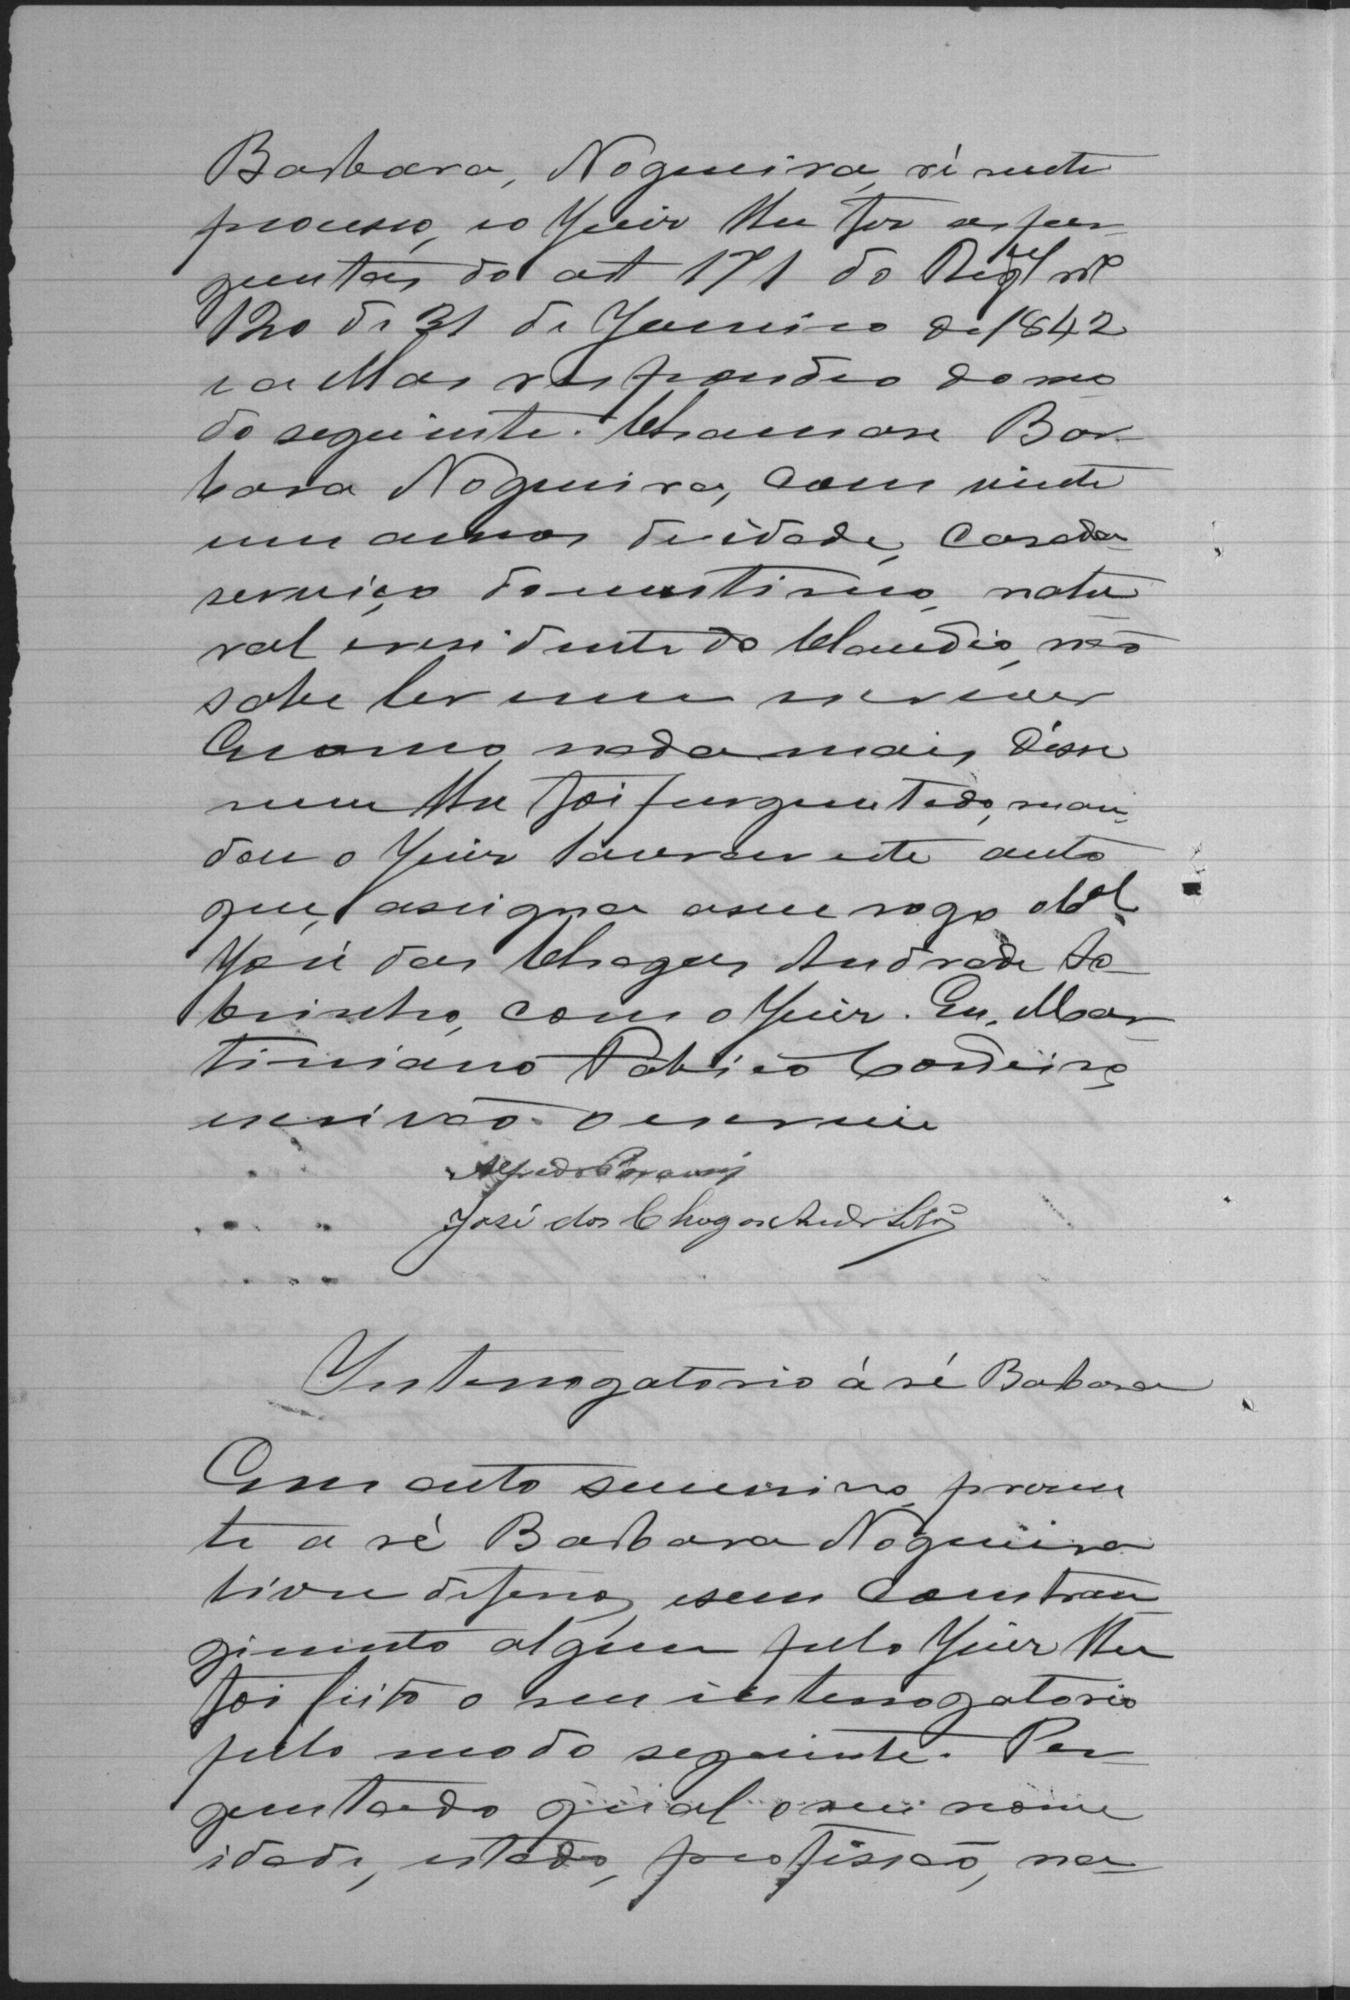 Barbara, Nogueira, ré neste
processo, e o Juiz lhe fez as per-
guntas do art 171 do Regul nº
120 de 31 de Janeiro de 1842
e a ellas respondeo do mo
do seguinte. Chamase Bar-
bara Nogueira, com vinte
um annos de idade, casada
serviço domestico, natu
ral e residente do Claudio, não
sabe ler nem escrever
E como nada mais disse
nem lhe foi perguntado, man-
dou o Juiz lavrar este auto
que, assigna a seu rogo o Cel
José das Chagas Andrade So-
brinho, com o Juiz. Eu, Mar-
timiano Cordeiro
escrivão o escrevi
José das Chagas Andr Sobrº
Interrogatorio á ré Barbara
Em acto successivo, presen
te a ré Barbara Nogueira
livre de ferros, e sem constran-
gimento algum pelo Juiz lhe
foi feito o seu interrogatorio
pelo modo seguinte. Per-
guntado qual o seu nome
idade, estado, profissão, na-